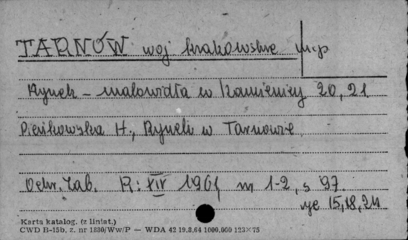 TARNÓW woj krakowskie mcp
Rynek – malowidła w kamienicy 20, 21
Pieńkowska H., Rynek w Tarnowie
Ochr. Zab. R: XIV 1961 nr 1-2, s 97
ryc 15,18,24
Karta katalog. (z liniat.)
CWD B-15b, z. nr 1850/Ww/P — WDA 42 19.8.64 1000.000 123×75